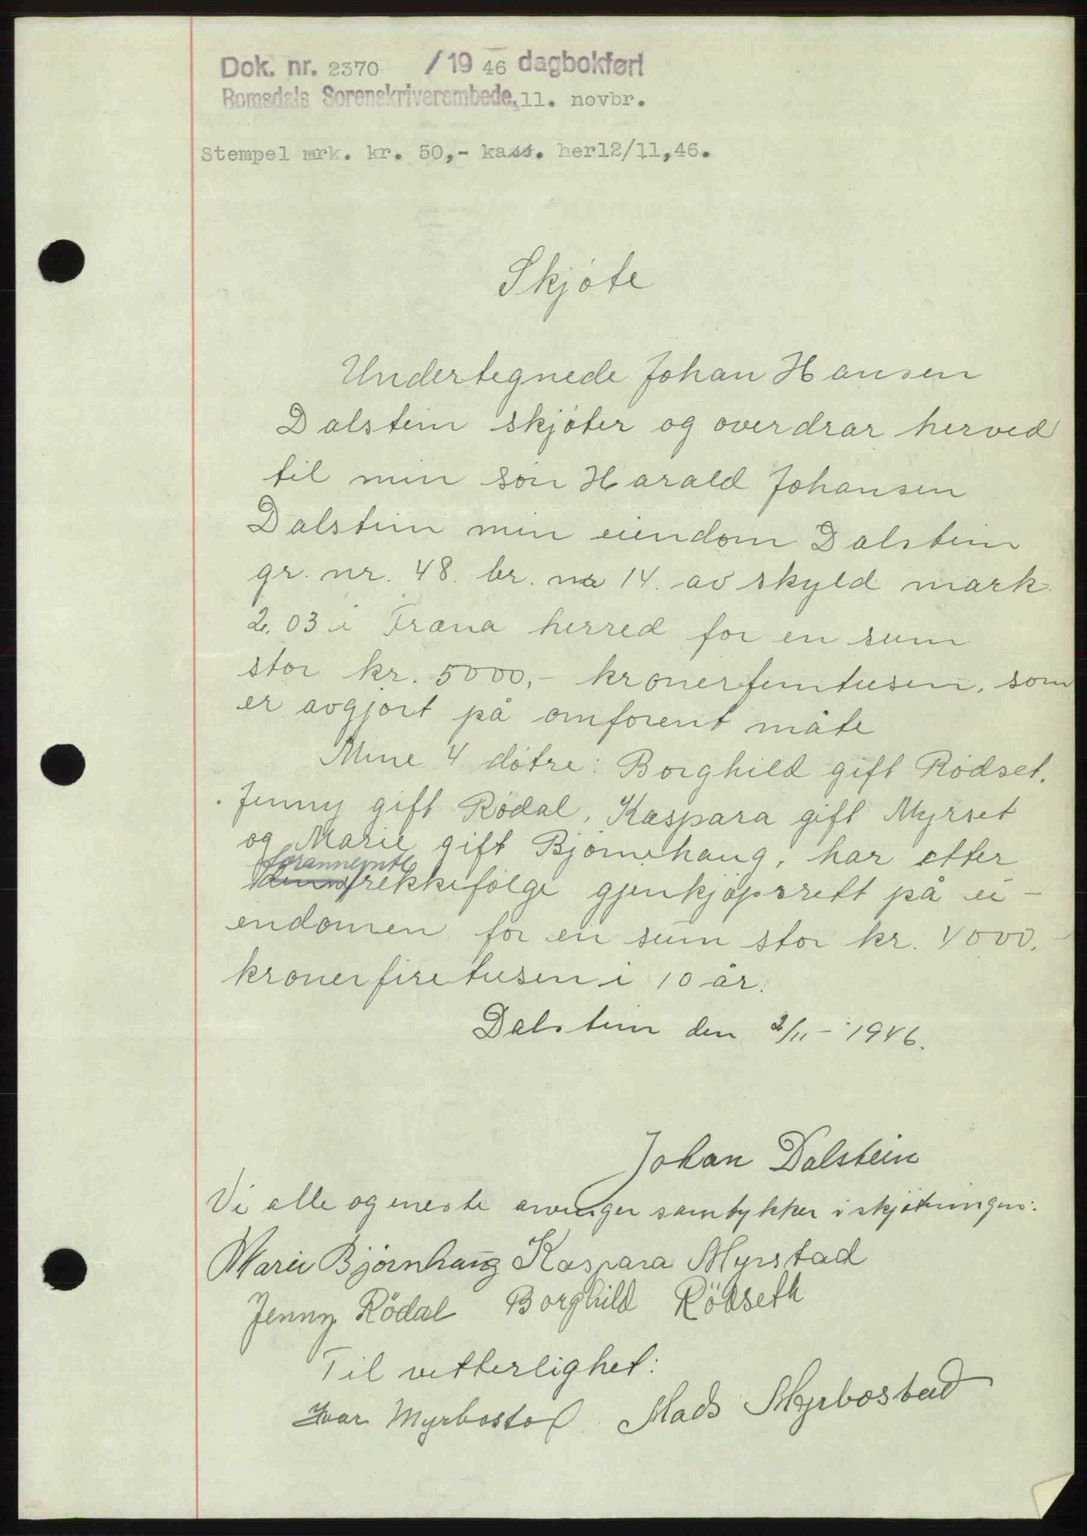 Dok. nr. 2370 / 19 46 dagbokført
Romsdals Sorenskriverembede, 11. novbr.
Stempel mrk. kr. 50,- kass. her12/11,46.
Skjøte
Undertegnede Johan Hansen
Dalstein skjøter og overdrar herved
til min søn Harald Johansen
Dalstein min eiendom Dalstein
gr. nr. 48. br. nr 14. av skyld mark
2.03 i Fræna herred for en sum
stor kr. 5000,- kronerfemtusen, som
er avgjort på omforent måte
Mine 4 døtre: Borghild gift Rødset.
Jenny gift Rødal, Kaspara gift Myrset
og Marie gift Bjørnehaug, har etter
forannemte
rekkefølge gjenkjøpsrett på ei-
endomen for en sum stor kr. 4000.-
kronerfiretusen i 10 år.
Dalstein den 2/11 - 1946.
Johan Dalstein
Vi alle og eneste arvinger samtykker i skjøtningen:
Marie Bjørnhaug Kaspara Myrstad
Jenny Rödal Borghild Rödseth
Til vetterlighet:
Ivar Myrbostad Mads Myrbostad